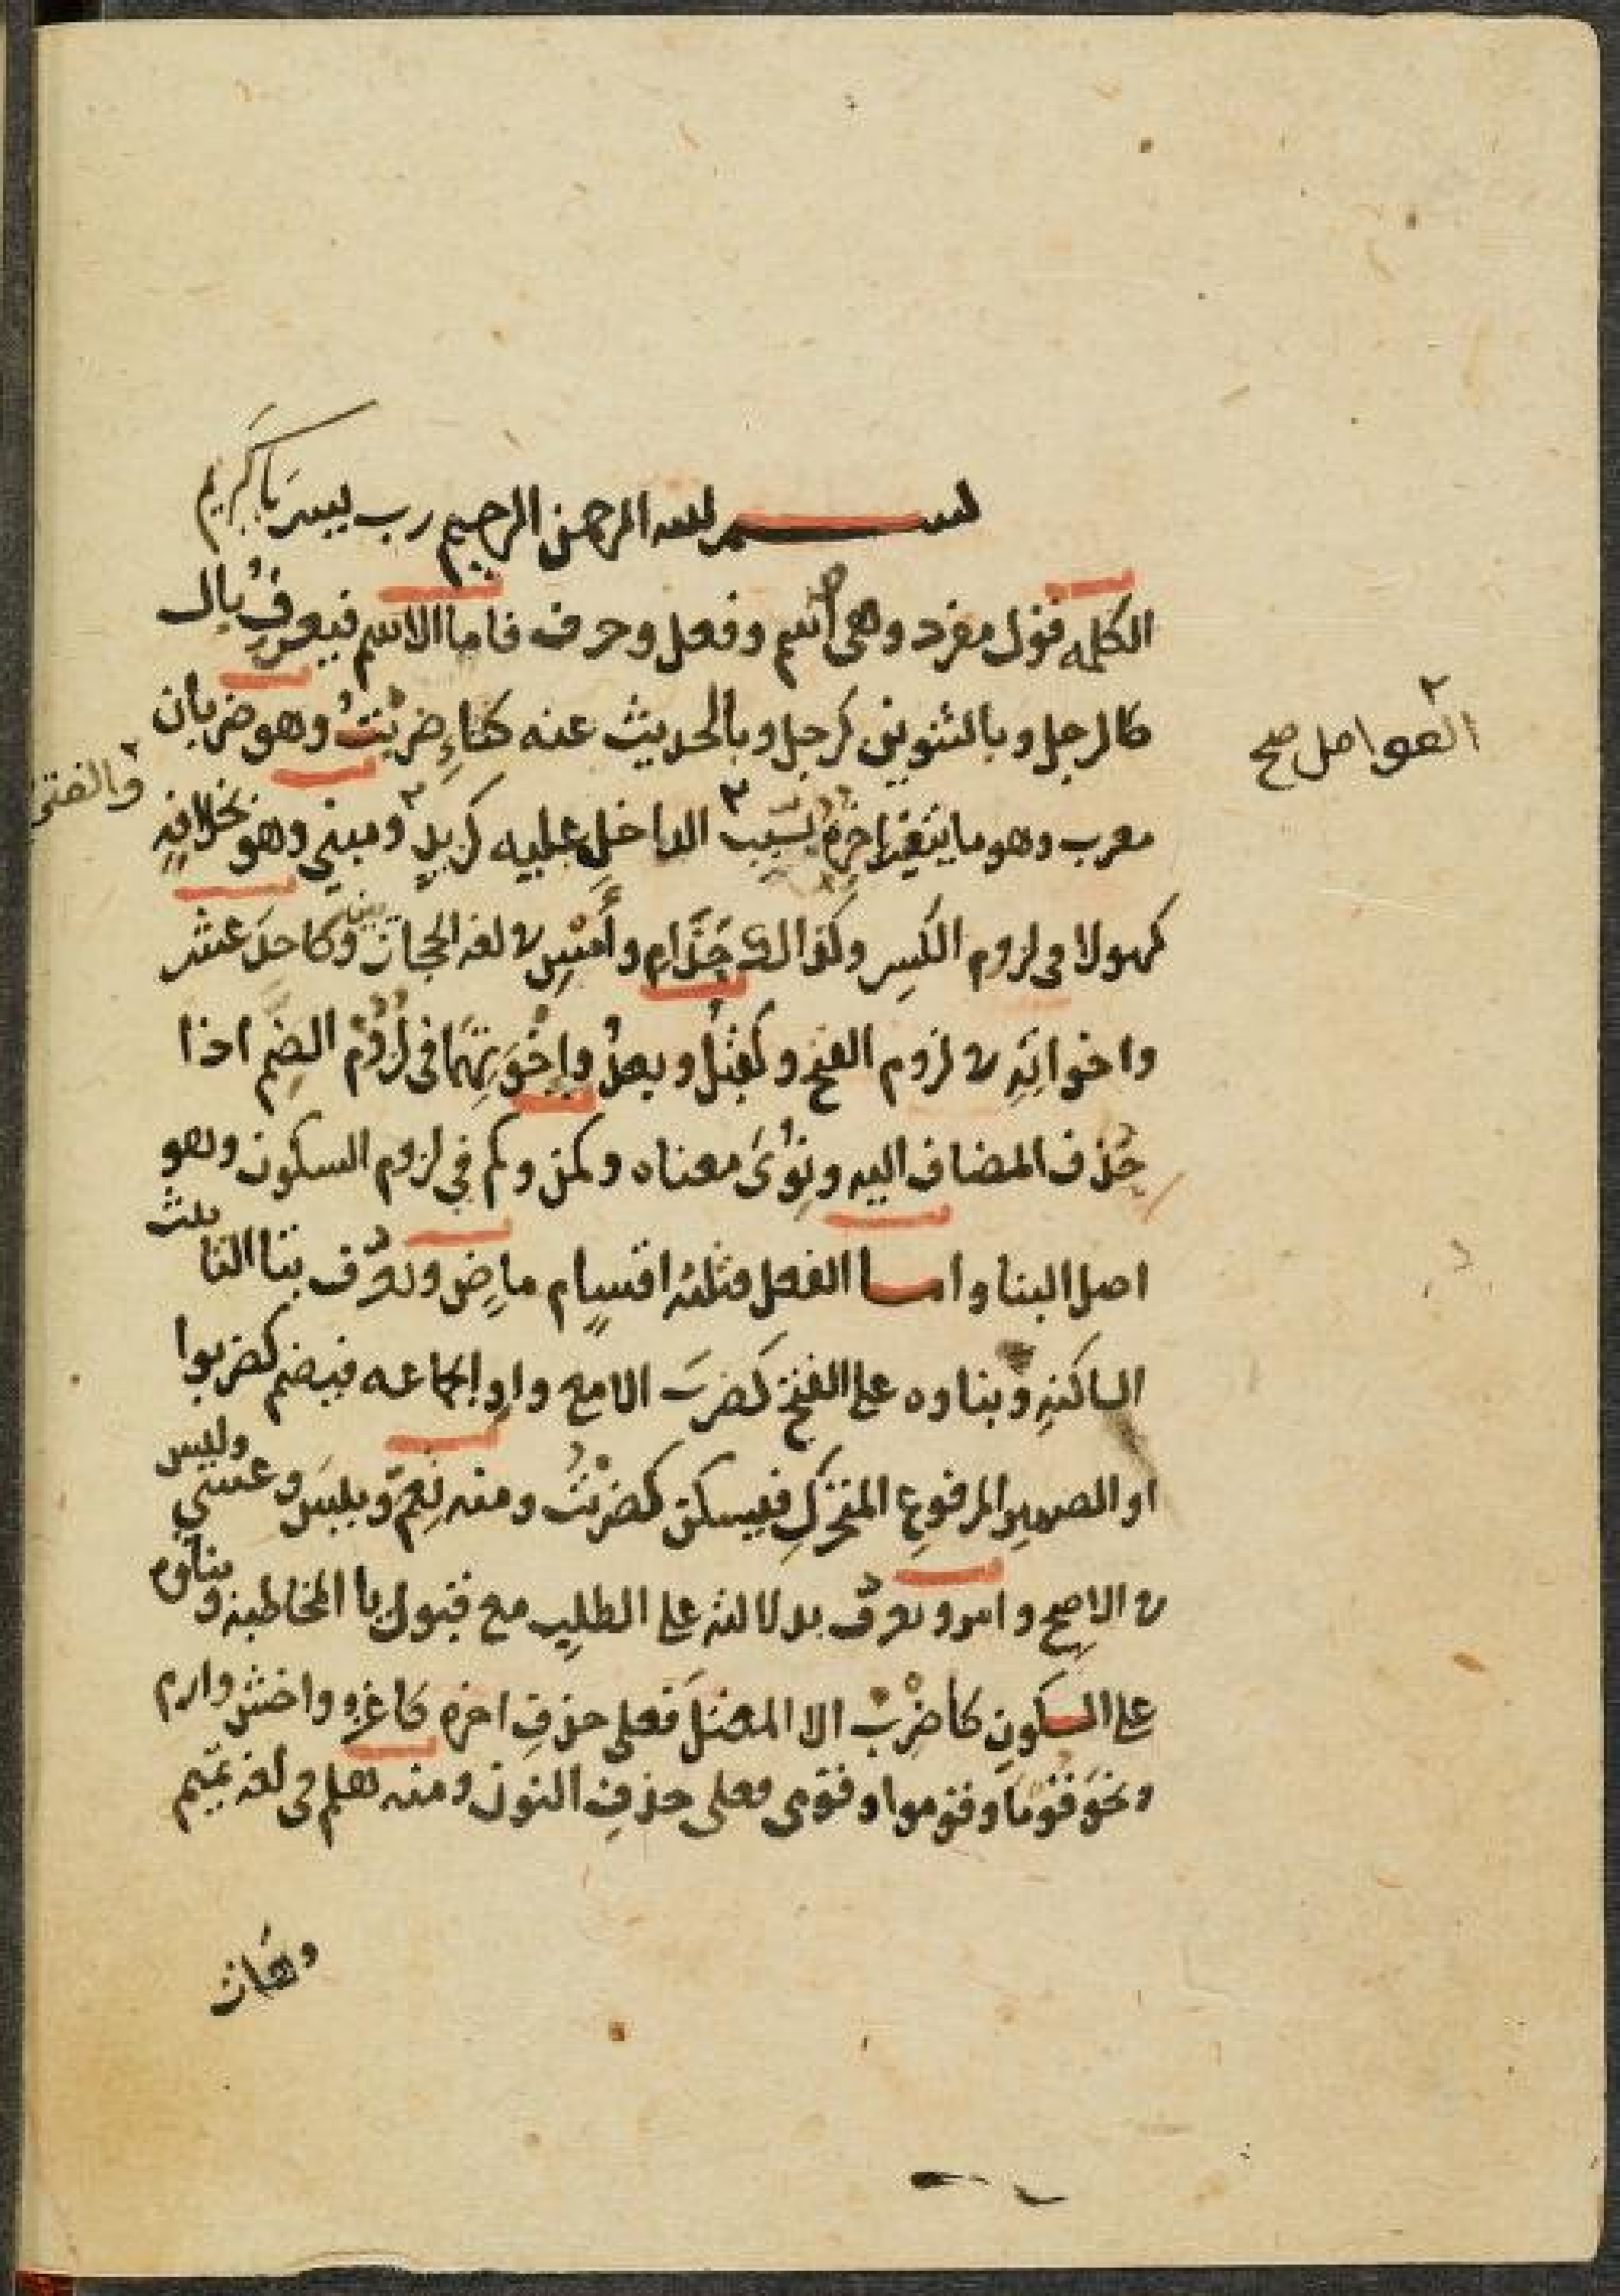 بسم الله الرحمن الرحيم رب يسر يا كريم
الكلمه قول مفرد وهى اسم وفعل وحرف فاما الاسم فيعرف بال
كالرجل وبالتنوين كرجل وبالحديث عنه كتاءِ ضربْتُ وهو ضربان
العوامل صح
معرب وهو ما يتغير اخرهُ بسَبب الداخلِ عليه كزيد ومبني وهو بخلافِهِ
والفتى
كهولا فى لزوم الكسِر وكذالك حَذَامِ وأَمْسِ في لغه الحجازيين وكاحدَ عشر
واخواتِهِ في لزوم الفتح وكقبْلُ وبعدُ وإِخْوَتِهَما فى لُزُوْم الضم اذا
حُذف المضاف اليه ونُوِىَ معناه وكمن وكم في لزوم السكون وهو
اصل البنا واما الفعل فثلثه اقسام ماضٍ ويعرف بتا التانيث
الساكنه وبناوه على الفتح كضربَ الا مع واو الجماعه فيضم كضربوا
او الضمير المرفوع المتحركِ فيسكن كضربْتُ ومنه نِعمَ وبيسَ وعسى وليس
في الاصح وامر ويعرف بدلالته على الطلب مع قبول يا المخاطبه وبناوه
على السكون كاضربْ الا المعتل فعلى حذفِ اخره كاغزو واخش وارم
ونحوَ قوُما وقوموا وقومى فعلى حذفِ النون ومنه هلم فى لغه تميم
وهات